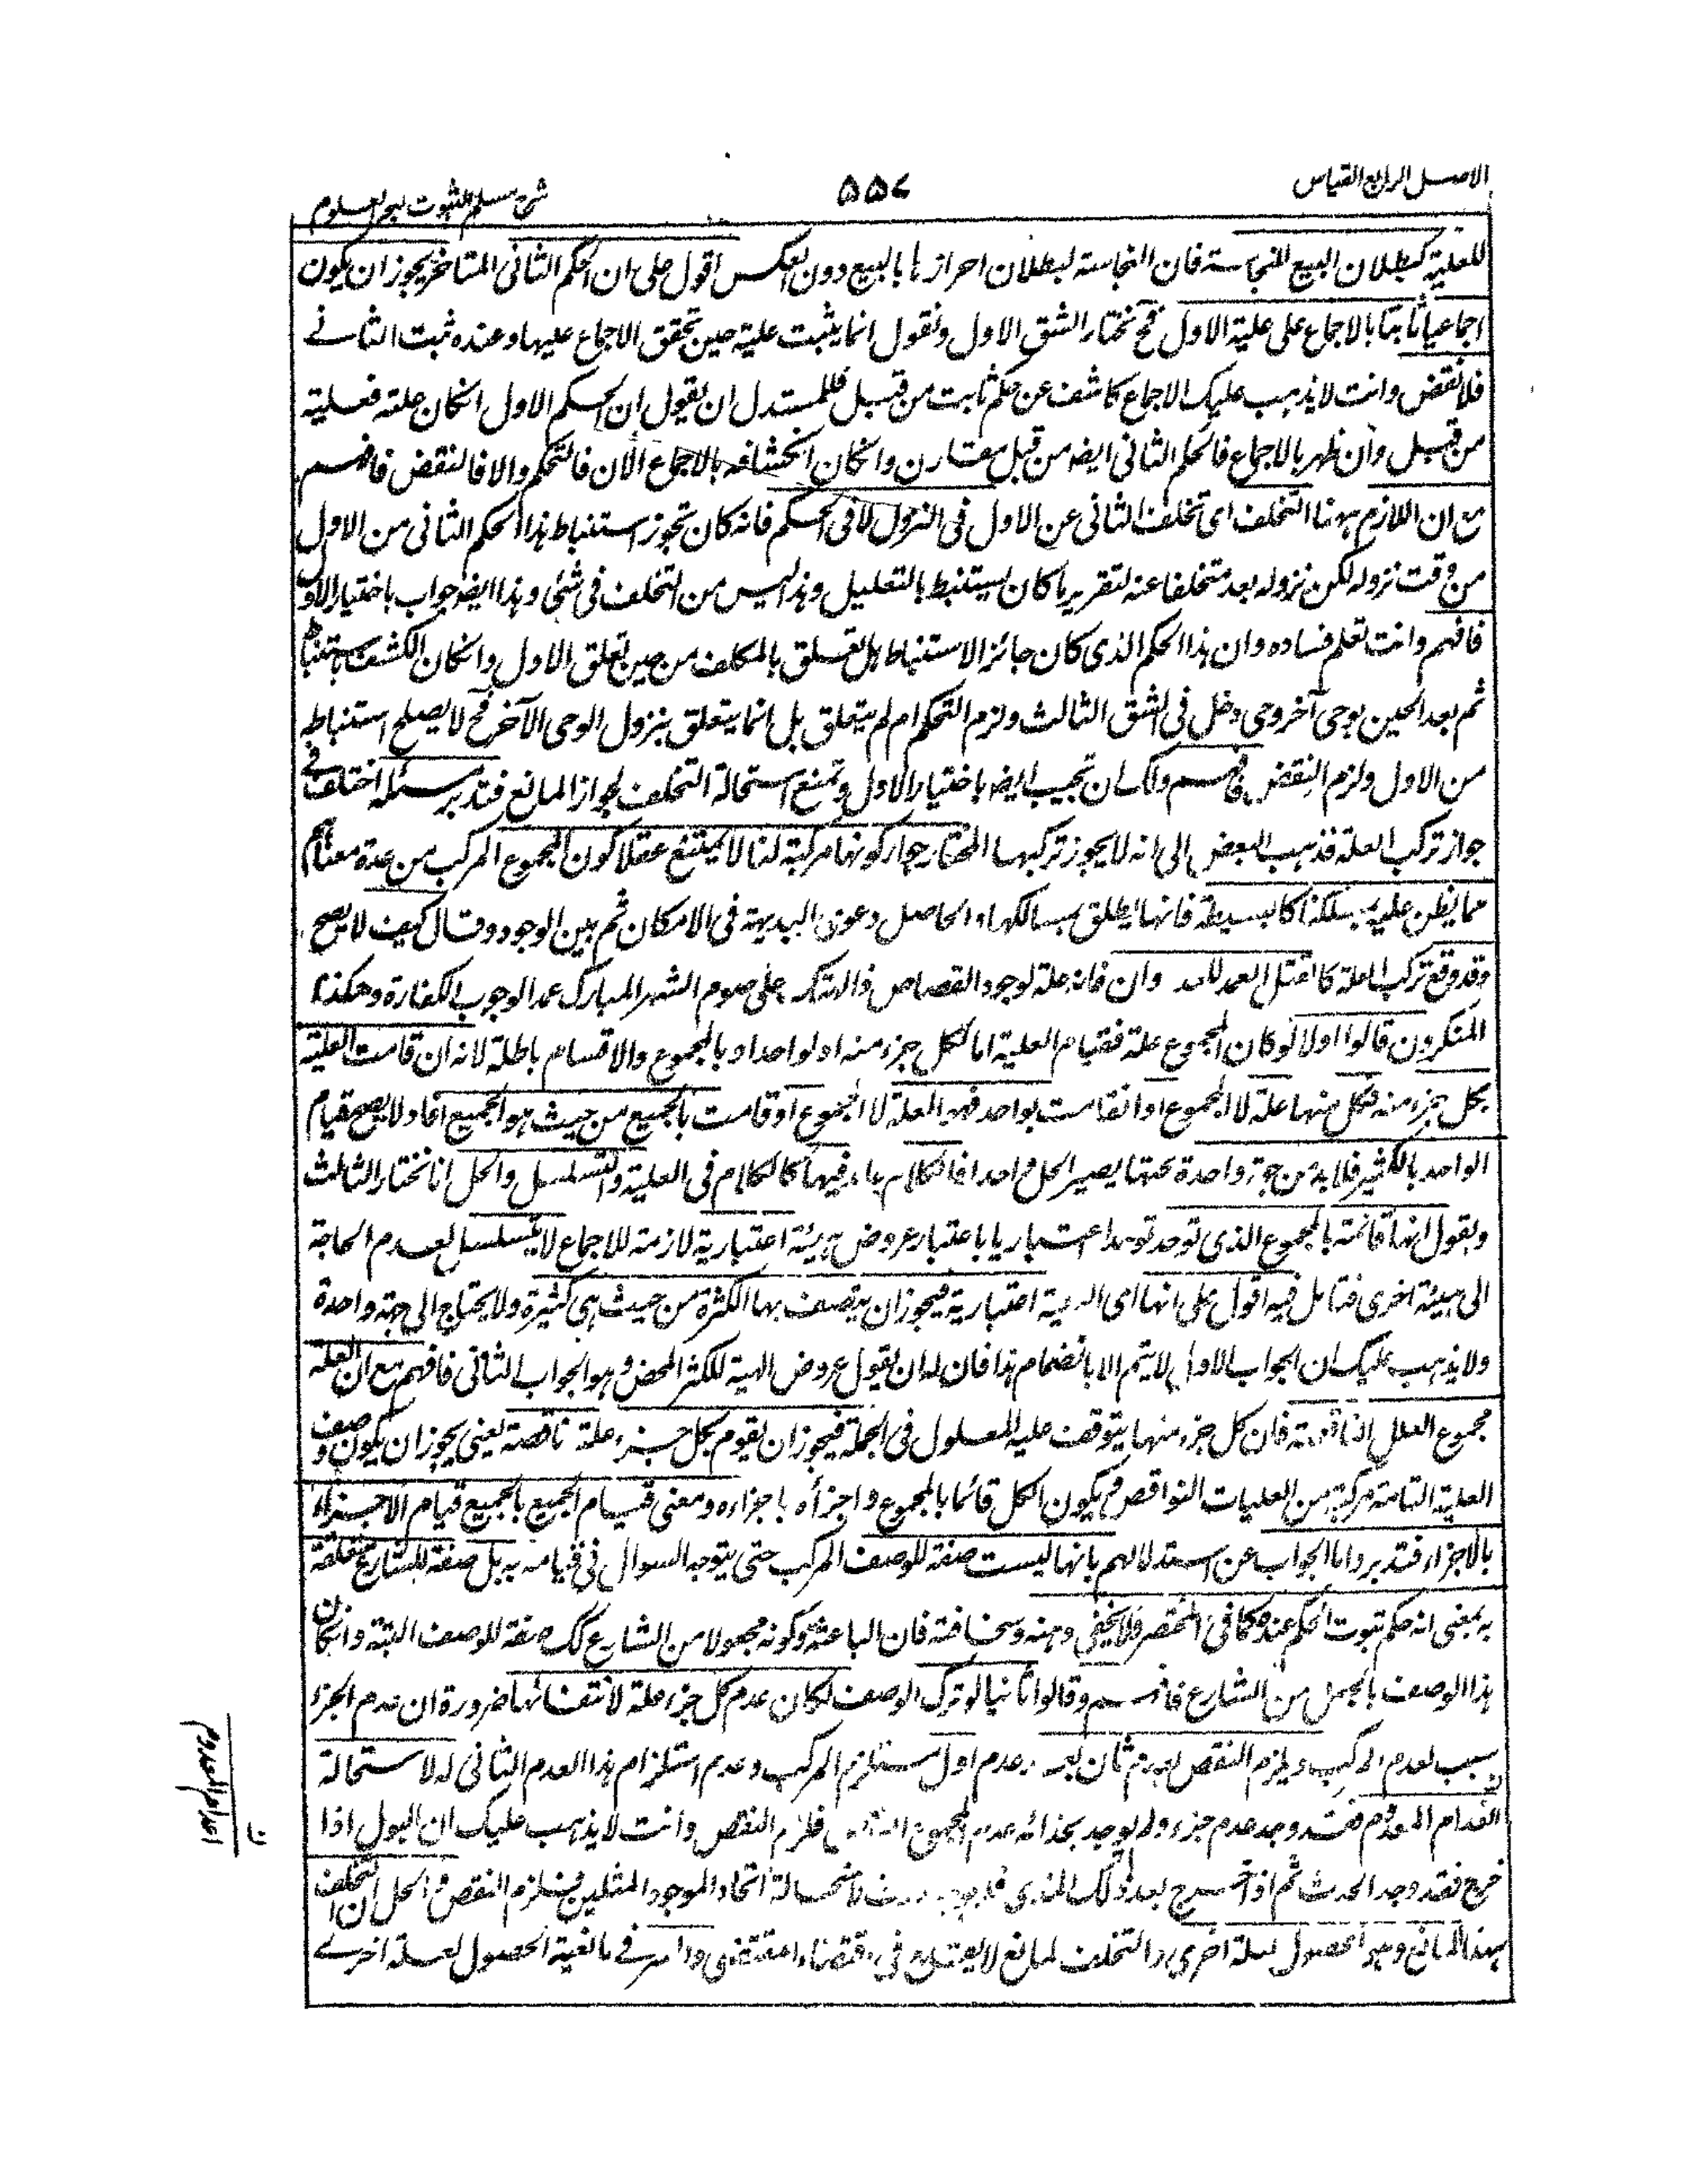 الاصل الرابع القياس
۵۵۷
شرح مسلم الثبوت لبحر العلوم
للعلية كبطلان البيع للنجاسة فان النجاسة لبطلان احرازها بالبيع دون العكس اقول على ان الحكم الثانى المتاخر يجوز ان يكون
اجماعيا ثابتا بالاجماع على علية الاول فح نختار الشق الاول ونقول انما يثبت علية حين تحقق الاجماع عليها وعنده ثبت الثانے
فلا نقض وانت لا يذهب عليك الاجماع كاشف عن حكم ثابت من قبل فللمستدل ان يقول ان الحكم الاول انكان علته فعلية
من قبل وان ظهر بالاجماع فالحكم الثانى ايضا من قبل مقارن وانكان انكشافه بالاجماع الآن فالتحكم والا فالنقض فافهم
مع ان اللازم ههنا التخلف اى تخلف الثانى عن الاول فى النزول لا فى الحكم فانه كان تجوز استنباط هذا الحكم الثانى من الاول
من وقت نزوله لكن نزوله بعد متخلفا عنه لتقرير ما كان يستنبط بالتعليل وهذا ليس من التخلف فى شئ وهذا ايضا جواب باختيار الاول
فافهم وانت تعلم فساده وان هذا الحكم الذى كان جائز الاستنباط هل تعلق بالمكلف من حين تعلق الاول وانكان الكشف باستنباط
ثم بعد الحين بوحى آخر وحى دخل فى الشق الثالث ولزم التحكم ام لم يتعلق بل انما يتعلق بنزول الوحى الآخر فح لا يصلح استنباطه
من الاول ولزم النقض فافهم ولك ان تجيب ايضا باختيار الاول وتمنع استحالة التخلف لجواز المانع فتدبر مسئلة اختلف فے
جواز تركب العلة فذهب البعض الى انه لا يجوز تركبها المختار جواز كونها مركبة لنا لا يمتنع عقلا كون المجموع المركب من عدة معان
مما يظن عليته بمسلكه كالبسيطة فانها يطلق بمسالكها والحاصل دعوى البديهة فى الامكان ثم بين الوجود وقال كيف لا يصح
وقد وقع تركب العلة كالقتل العمد وان فانه علة لوجود القصاص والهتك على صوم الشهر المبارك عمدا لوجوب الكفارة وهكذا
المنكرون قالوا اولا لو كان المجموع علة فقيام العلية اما لكل جزء منه او لواحد او بالمجموع والاقسام باطلة لانه ان قامت العلية
بكل جزء منه فكل منها علة لا المجموع او انقامت بواحد فهو العلة لا المجموع او قامت بالجميع من حيث هو الجميع اعاد لا يصح قيام
الواحد بالكثير فلا بد من جهة واحدة بحيثها يصير الحل واحدا فالكلام فيها كالكلام فى العلية والتسلسل والحل انا نختار الثالث
ونقول انها قائمة بالمجموع الذى توحد توحدا اعتباريا باعتبار عروض هيئة اعتبارية لازمة للاجماع لا يتسلسل لعدم الحاجة
الى هيئة اخرى فتامل فيه اقول على انها اى العلية اعتبارية فيجوز ان يتصف بها الكثرة من حيث هى كثيرة ولا يحتاج الى جهة واحدة
ولا يذهب عليك ان الجواب الاول لا يتم الا بانضمام هذا فان له ان يقول عروض الهيئة للكثر المحض وهو الجواب الثانى فافهم مع ان العلة
مجموع العلل الناقصة فان كل جزء منها يتوقف عليه المعلول فى الجملة فيجوز ان يقوم بكل جزء علة ناقصة يعنى يجوز ان يكون وصف
العلية التامة مركبة من العليات النواقص فيكون الكل قائما بالمجموع واجزاؤه باجزاءه ومعنى قيام الجميع بالجميع قيام الاجزاء
بالاجزاء فتدبر واما الجواب عن استدلالهم بانها ليست صفة للوصف المركب حتى يتوجه السوال فى قيامه به بل صفة للشارع متعلقة
به بمعنى انه حكم بثبوت الحكم عنده كما فى المختصر فلا يخفى وهنه وسخافته فان الباعثية وكونه مجعولا من الشارع كك صفة للوصف البتة وانكان
هذا الوصف بالجعل من الشارع فافهم وقالوا ثانيا لو تركب الوصف لكان عدم كل جزء علة لانتفائها ضرورة ان عدم الجزء
سبب لعدم المركب ويلزم النقض بعدم ثان بعد عدم اول مستلزم المركب وعدم استلزام هذا العدم الثانى له لاستحالة
انعدام المعدوم فقد وجد عدم جزء ولم يوجد بحذائه عدم المجموع فلزم النقض وانت لا يذهب عليك ان البول اذا
خرج فقد وجد الحدث ثم اذا خرج بعد ذلك المذى فلا يوجد لاستحالة اتحاد الموجود المثلين فيلزم النقض والحل ان التخلف
بهذا المانع وهو الحصول لعلة اخرى والتخلف لمانع لا يقدح فى اقتضاء المقتضى فے مانعية الحصول لعلة اخرے
ن اعدام المعدوم